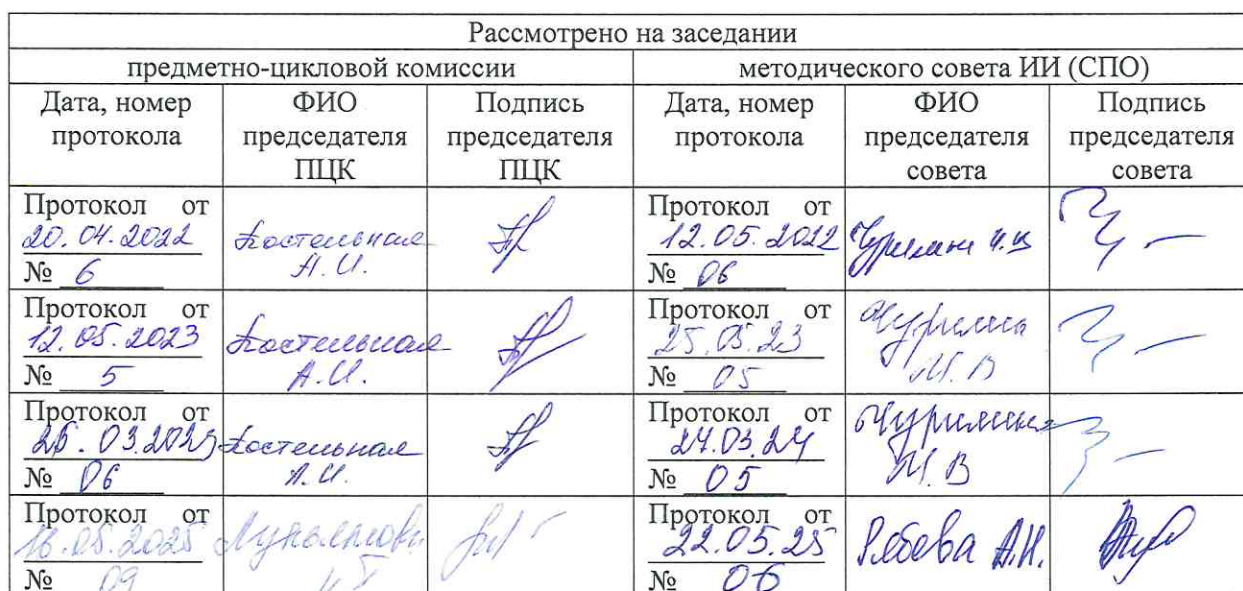 Рассмотрено на заседании
предметно-цикловой комиссии
методического совета ИИ (СПО)
Дата, номер протокола
ФИО председателя ПЦК
Подпись председателя ПЦК
Дата, номер протокола
ФИО председателя совета
Подпись председателя совета
Протокол от
20.04.2022
№ 6
Костельная
А.И.
Протокол от
12.05.2022
№ 06
Протокол от
12.05.2023
№ 5
Костельная
А.И.
Протокол от
25.05.23
№ 05
Чурилина
И.В
Протокол от
№ 06
Костельная
А.И.
Протокол от
27.03.24
№ 05
Чурилина
И.В
Протокол от
16.05.2025
№ 09
Протокол от
22.05.25
№ 06
Рябова А.Н.